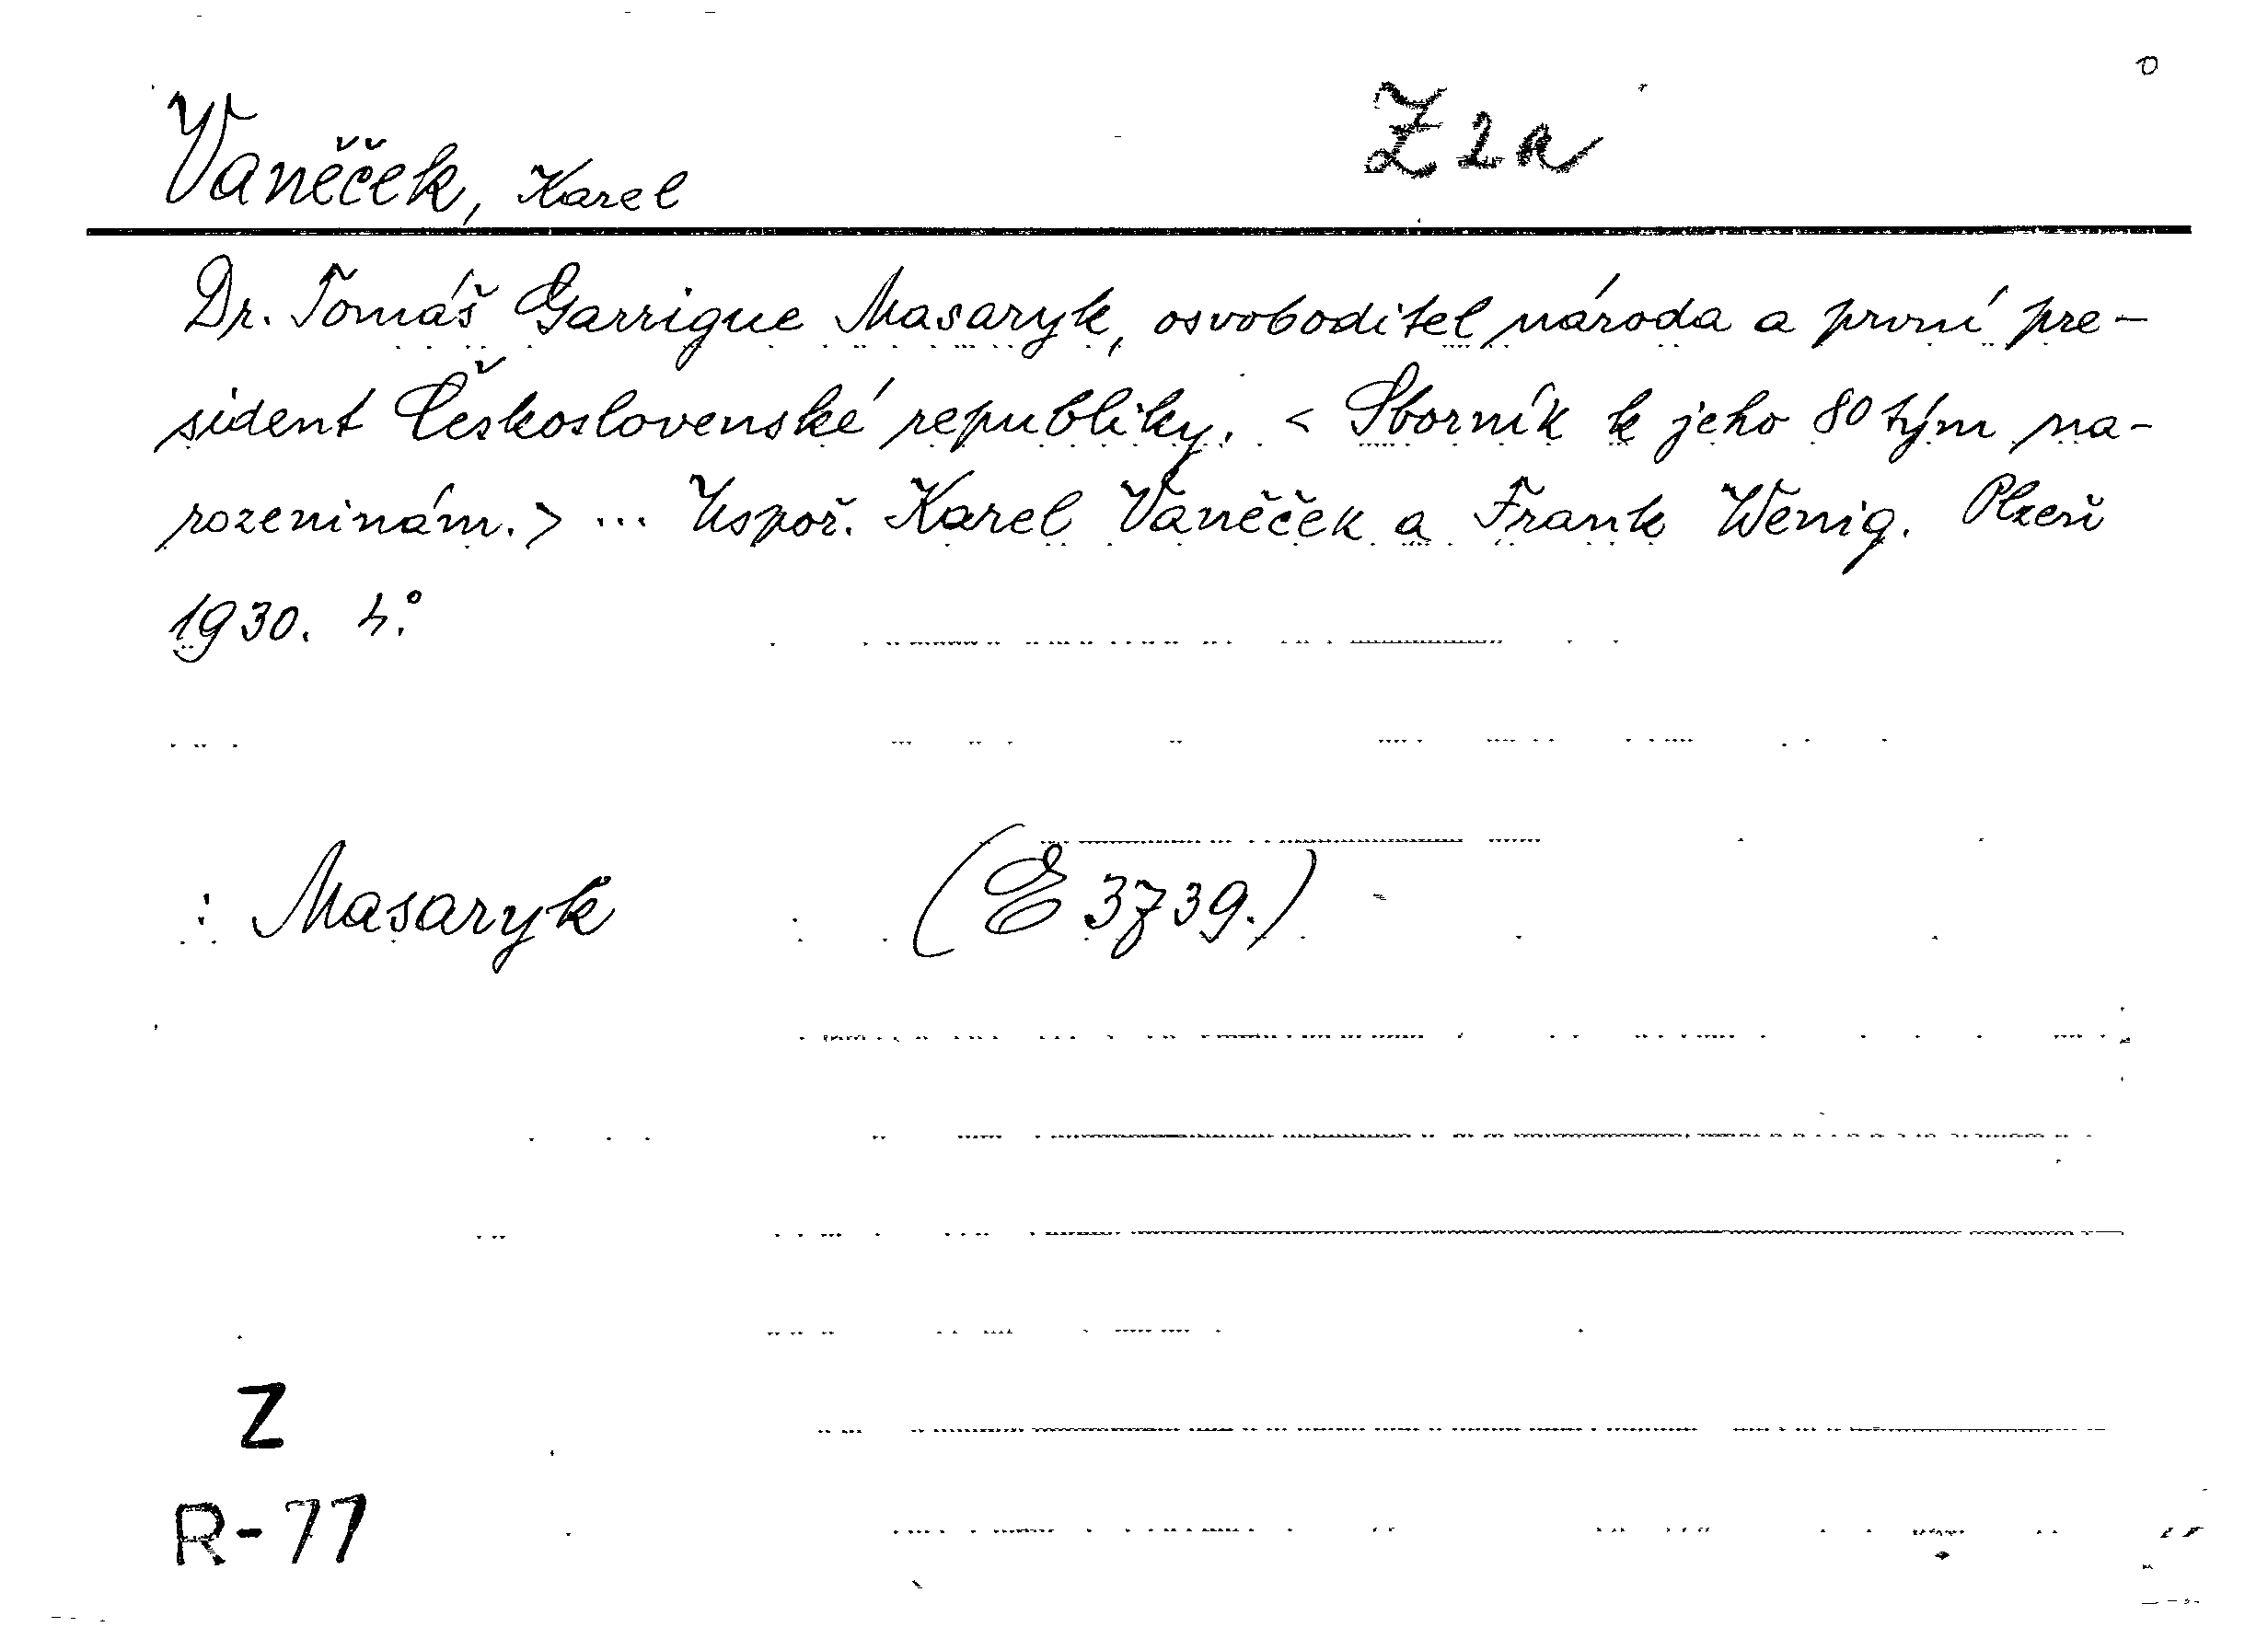 Vaněček, Karel Z 2a
Dr. Tomáš Garrigue Masaryk, osvoboditel národa a první pre-
sident Československé republiky. < Sborník k jeho 80tým na-
rozeninám. > ... Uspoř. Karel Vaněček a Frank Wenig. Plzeň
1930. 4.°
: Masaryk (E 3739.)
Z
R-77